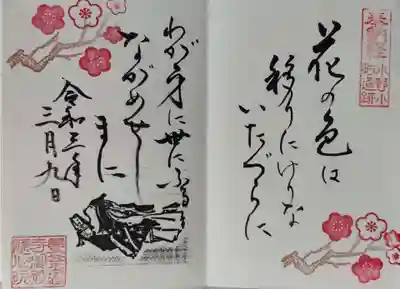 花の色は
移りにけりな
いたづらに
わが身に世にふる
ながめせし
まに
令和三年
三月九日
小野小
町遺跡